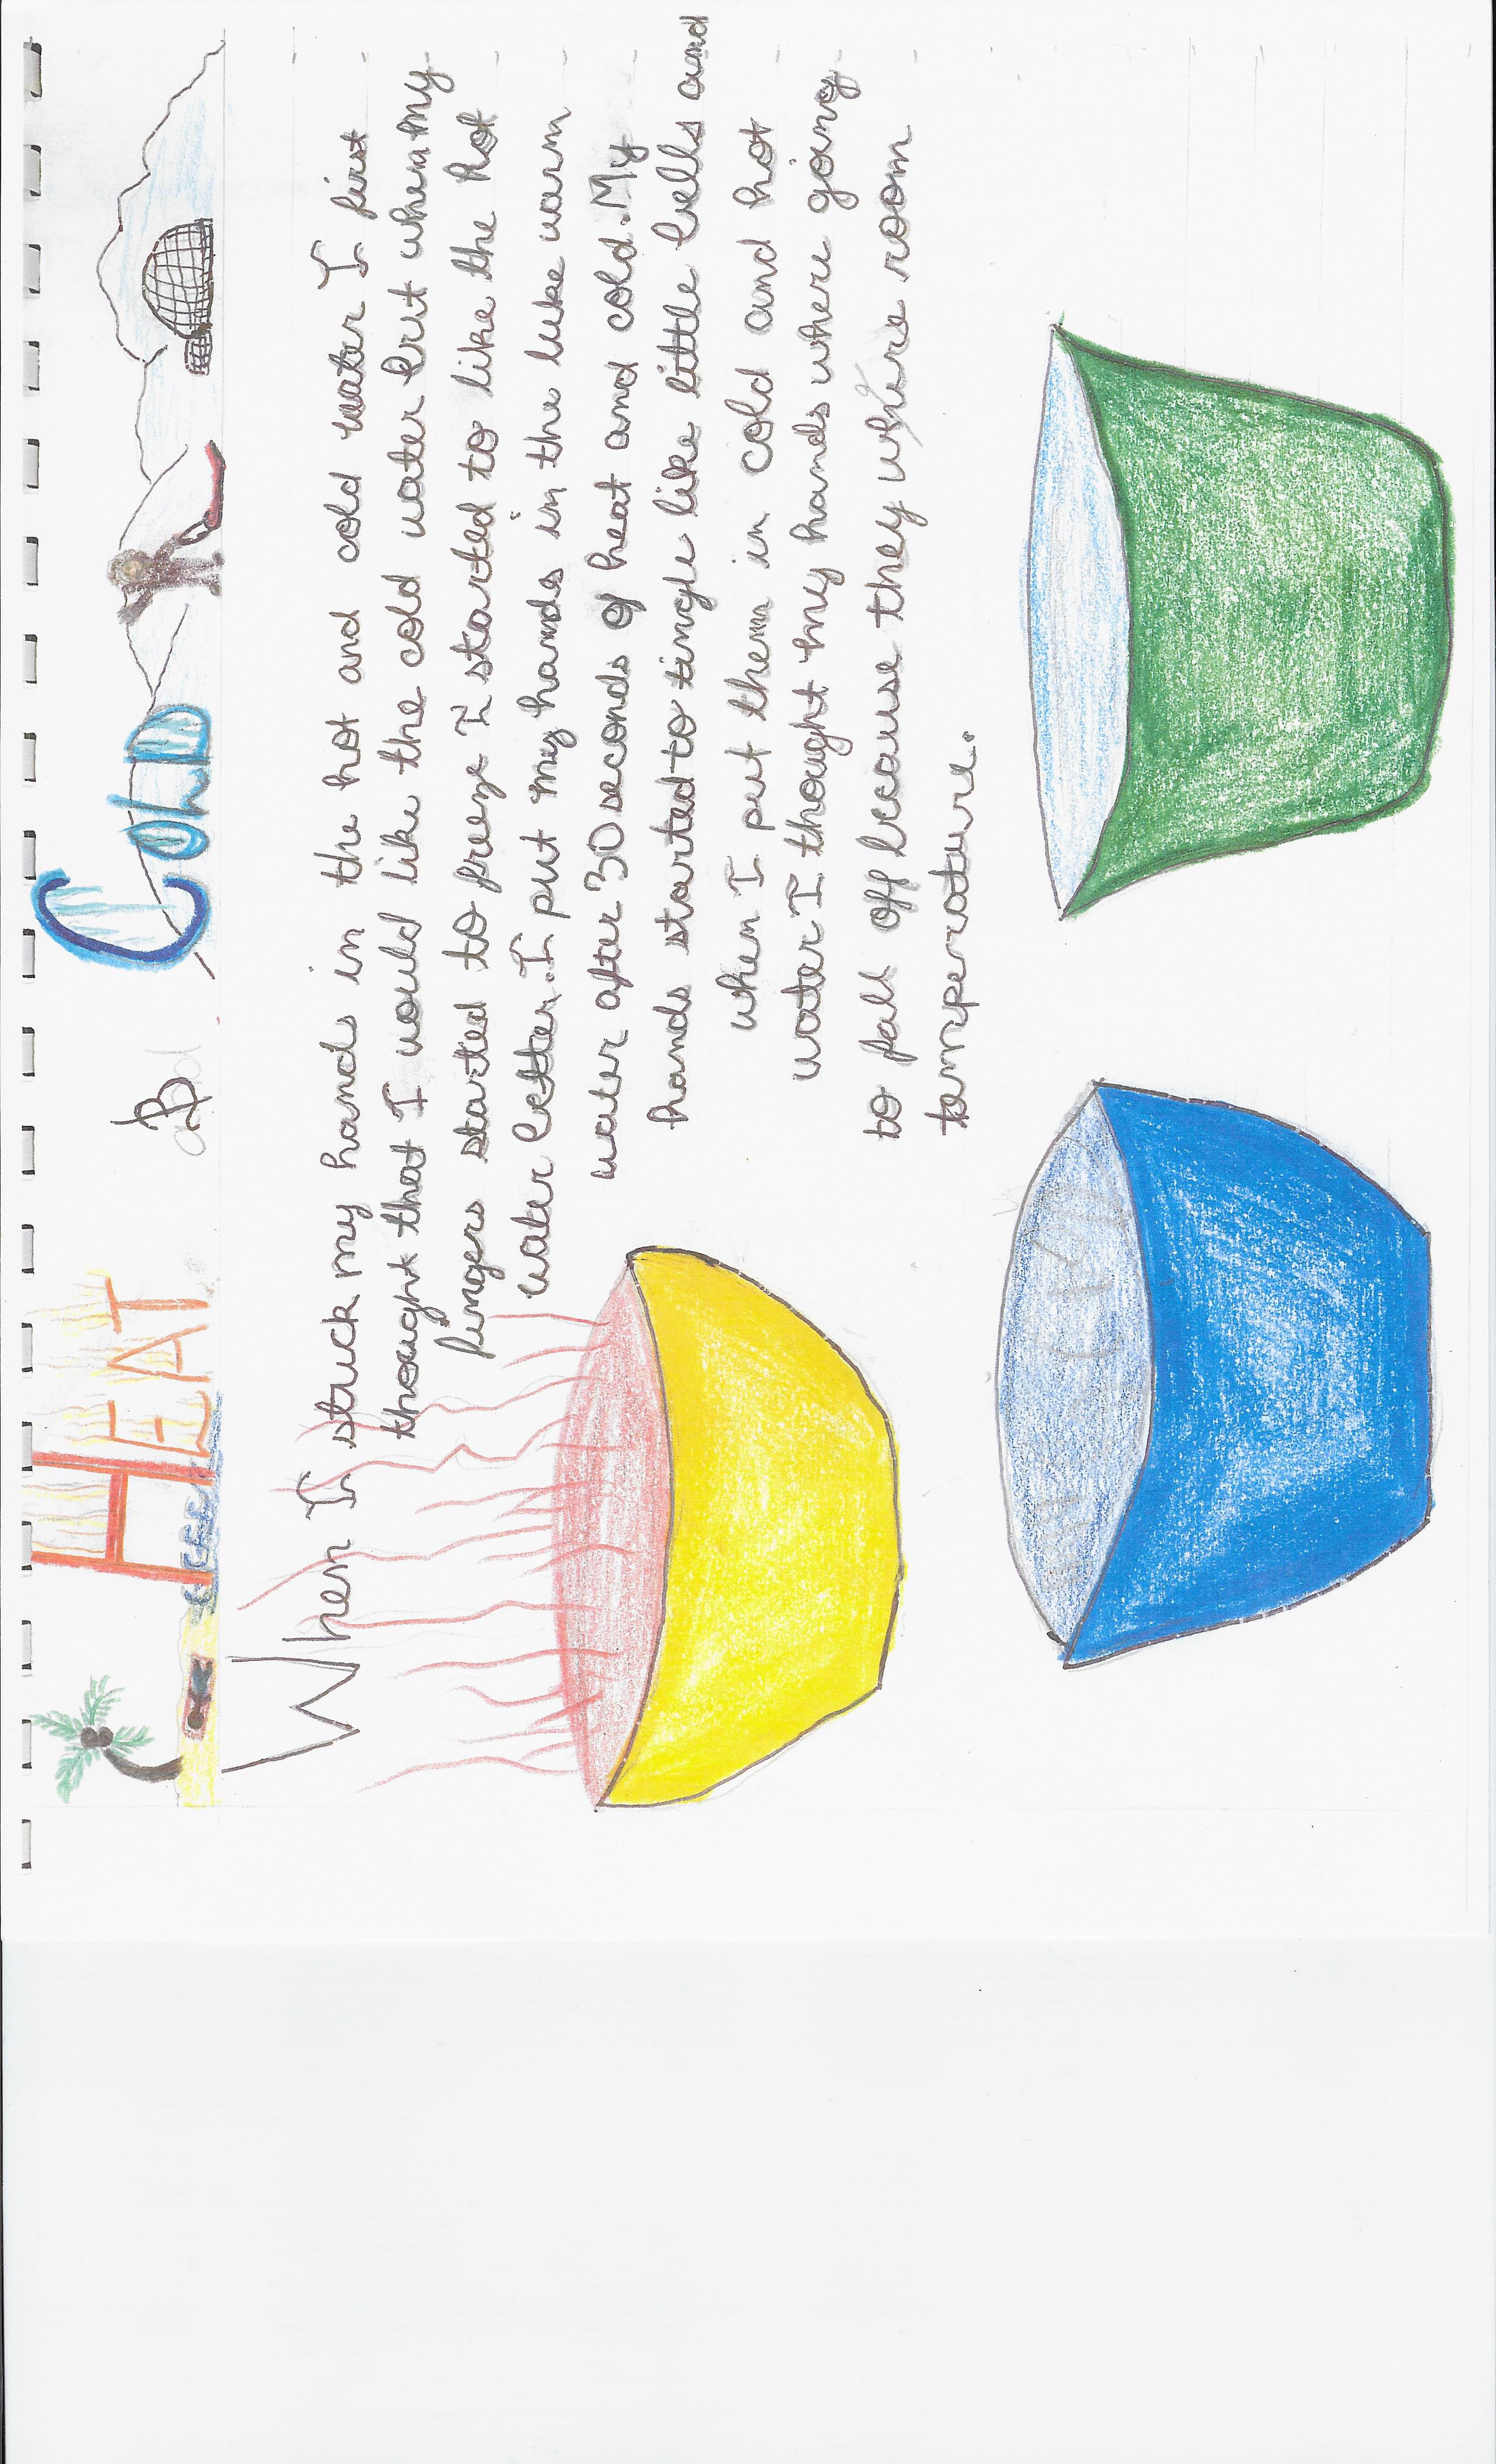 HEAT & COLD
When I stuck my hands in the hot and cold water I first
thought that I would like the cold water but when my
fingers started to freeze I started to like the hot
water better. I put my hands in the luke warm
water after 30 seconds of heat and cold. My
hands started to tingle like little bells and
when I put them in cold and hot
water I thought my hands where going
to fall off because they where room
temperature.